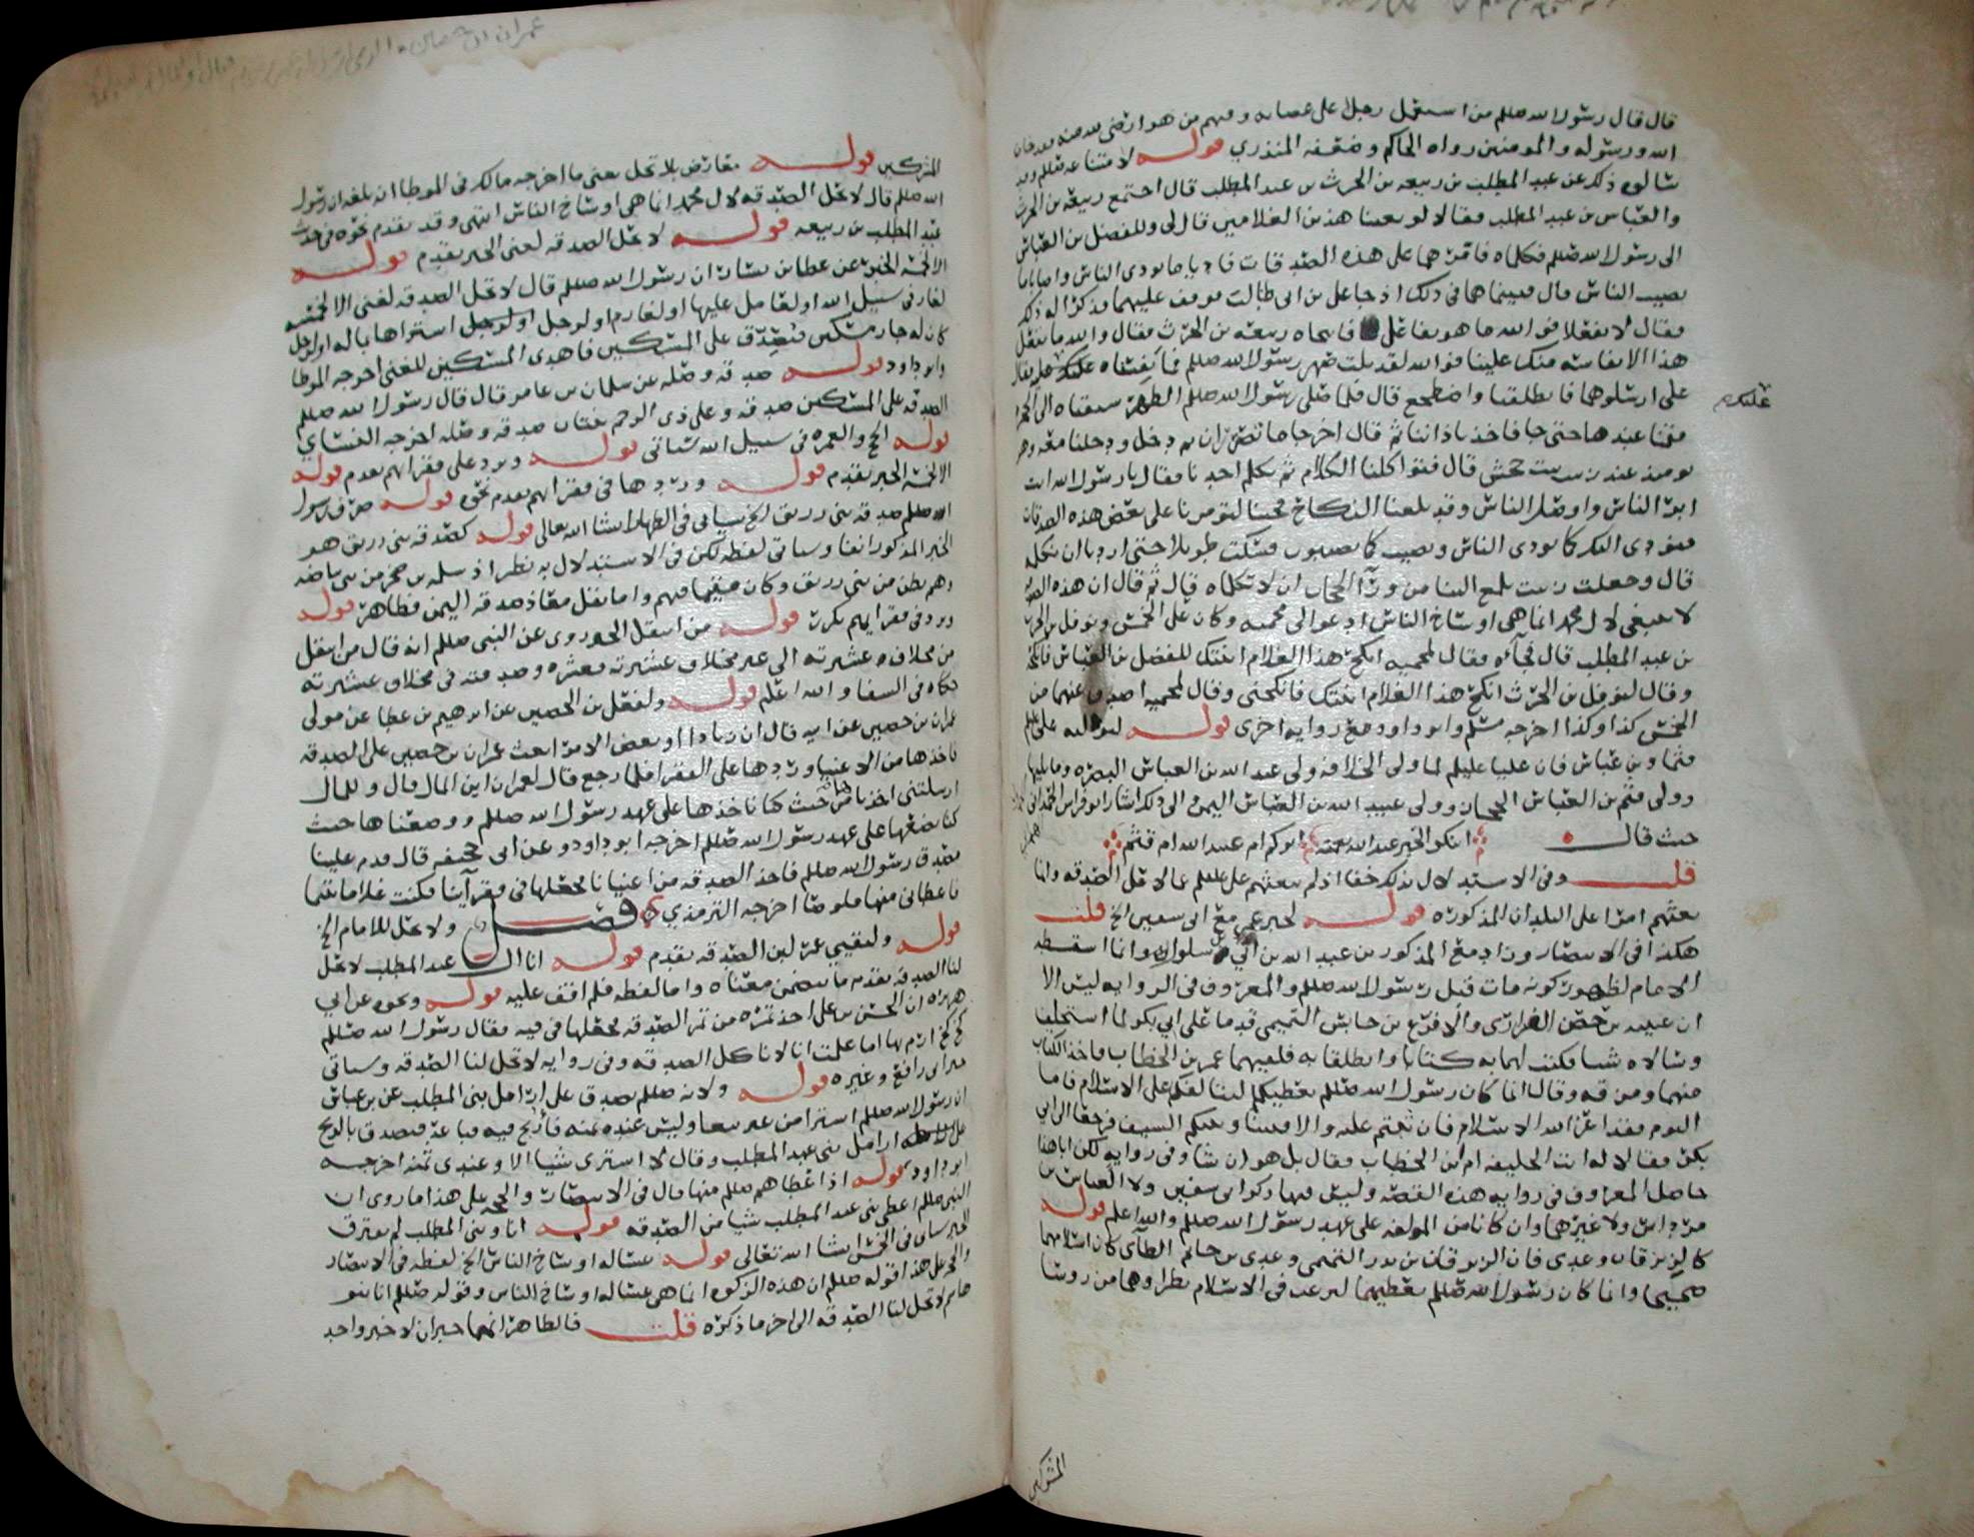 قال قال رسول الله صللم من استعمل رجلا على عصابه وفيهم من هو ارضى لله منه فقد خان
الله ورسوله والمومنين رواه الحاكم وضعفه المنذري قوله لامتناعه صللم وقد
سالوه ذلك عن عبد المطلب بن ربيعه بن الحرث بن عبد المطلب قال اجتمع ربيعه بن الحرث
والعباس بن عبد المطلب فقالا لو بعثنا هذين الغلامين قال لي وللفضل بن العباس
الى رسول الله صللم فكلماه فامرهما على هذه الصدقات فاديا ما يودي الناس واصابا ما
يصيب الناس قال فبينما هما في ذلك اذ جا علي بن ابي طالب فوقف عليهما فذكرا له ذلك
فقال لا تفعلا فوالله ما هو بفاعل فانتحاه ربيعه بن الحرث فقال والله ما تفعل
هذا الا نفاسه منك علينا فوالله لقد نلت صهر رسول الله صللم فما نفسناه عليك
علي ارسلوهما فانطلقنا واضطجع قال فلما صلى رسول الله صللم الظهر سبقناه الى الحجره
عليكم
فقمنا عندها حتى جا فاخذ باذاننا ثم قال اخرجا ما تصرران ثم دخل ودخلنا معه وهو
يومئذ عند زينب بنت جحش قال فتواكلنا الكلام ثم تكلم احدنا فقال يا رسول الله انت
ابر الناس واوصل الناس وقد بلغنا النكاح فجئنا لتومرنا على بعض هذه الصدقات
فنودي اليك كما يودي الناس ونصيب كما يصيبون فسكت طويلا حتى اردنا ان نكلمه
قال وجعلت زينب تلمع الينا من ورآ الحجاب ان لا تكلماه قال ثم قال ان هذه الصدقه
لا تنبغي لال محمد انما هي اوساخ الناس ادعوا لي محميه وكان على الخمس ونوفل بن الحرث
بن عبد المطلب قال فجآءه فقال لمحميه انكح هذا الغلام ابنتك للفضل بن العباس فانكحه
وقال لنوفل بن الحرث انكح هذا الغلام ابنتك فانكحني وقال لمحميه اصدق عنهما من
الخمس كذا وكذا اخرجه مسلم وابو داود مع روايه اخرى قوله لتوليه علي علم
قثما وبن عباس فان عليا عليلم لما ولي الخلافه ولى عبد الله بن العباس البصره وما يليها
وولى قثم بن العباس البحرين وولى عبيد الله بن العباس اليمن والى ذلك اشار ابو فراس الحمداني
حيث قال ابنكم الخير عبد الله نعمته ابوكم ام عبيد الله ام قثم
قلت وفي الاستدلال بذلك خفا اذ لم يبعثهم علي عللم عمالا على الصدقه وانما
بعثهم امرا على البلدان المذكوره قوله لخبر عمر مع ابي سفين الخ قلت
هكذا في الانتصار وزاد مع المذكور بن عبد الله بن ابي سلول وانما اسقطه
الامام لظهور كونه مات قبل رسول الله صللم والمعروف في الروايه ليس الا
ان عيينه بن حصن الفزاري والاقرع بن حابس التميمي قدما على ابي بكر لما استخلف
وسالاه شيا فكتب لهما به كتابا وانطلقا به فلقيهما عمر بن الخطاب فاخذ الكتاب
منهما ومزقه وقال انما كان رسول الله صللم يعطيكم ليتالفكم على الاسلام فاما
اليوم فقد اعز الله الاسلام فان ثبتم عليه والا فبيننا وبينكم السيف فرجعا الى ابي
بكر فقالا له انت الخليفه ام بن الخطاب فقال بل هو ان شا وفي روايه لكن ابا هذا
حاصل المعروف في روايه هذه القصه وليس فيها ذكر ابي سفين ولا العباس بن
مرداس ولا غيرهما وان كانا من المولفه على عهد رسول الله صللم والله اعلم قوله
كالزبرقان وعدي فان الزبرقان بن بدر التميمي وعدي بن حاتم الطآئى كان اسلامهما
صحيحا وانما كان رسول الله صللم يعطيهما ليرغب في الاسلام نظراوهما من روسا
المشركين
المشركين قوله معارض بلا تحل يعني ما اخرجه مالك في الموطا انه بلغه ان رسول
الله صللم قال لا تحل الصدقه لال محمد انما هي اوساخ الناس انتهى وقد تقدم نحوه في حديث
عبد المطلب بن ربيعه قوله لا تحل الصدقه لغني الخبر تقدم قوله
الا لخمسه الخبر عن عطا بن يسار ان رسول الله صللم قال لا تحل الصدقه لغني الا لخمسه
لغاز في سبيل الله او لعامل عليها او لغارم او لرجل اشتراها بماله او لرجل
كان له جار مسكين فتصدق على المسكين فاهدى المسكين للغني اخرجه الموطا
وابو داود قوله صدقه وصله عن سلمان بن عامر قال قال رسول الله صللم
الصدقه على المسكين صدقه وعلى ذي الرحم ثنتان صدقه وصله اخرجه النسائي
قوله الحج والعمره في سبيل الله سياتي قوله وترد على فقرائهم تقدم قوله
الا لخمسه الخبر تقدم قوله وردها في فقرائهم تقدم نحوه قوله صرف رسول
الله صللم صدقه بني زريق الخ سياتي في الظهار ان شا الله تعالى قوله كصدقه بني زريق هو
الخبر المذكور انفا وسياتي لفظه لكن في الاستدلال به نظر اذ سلمه بن صخر من بني بياضه
وهم بطن من بني زريق وكان مقيما فيهم واما نقل معاذ صدقه اليمن فظاهر قوله
وترد في فقرايهم تكرر قوله من انتقل الخ روي عن النبي صللم انه قال من انتقل
من مخلاف عشيرته الى غير مخلاف عشيرته فعشره وصدقته في مخلاف عشيرته
حكاه في الشفا والله اعلم قوله ولفعل بن الحصين عن ابرهيم بن عطا عن مولى
عمران بن حصين عن ابيه قال ان زيادا او بعض الامرا بعث عمران بن حصين على الصدقه
فاخذها من الاغنيا وردها على الفقرا فلما رجع قال لعمران اين المال قال وللمال
ارسلتني اخذناها من حيث كنا ناخذها على عهد رسول الله صللم ووضعناها حيث
كنا نضعها على عهد رسول الله صللم اخرجه ابو داود وعن ابي جحيفه قال قدم علينا
مصدق رسول الله صللم فاخذ الصدقه من اغنيانا فجعلها في فقرآئنا وكنت غلاما يتيما
فاعطاني منها قلوصا اخرجه الترمذي فصل ولا تحل للامام الخ
قوله ولتقيي عمر لبن الصدقه تقدم قوله انا ال عبد المطلب لا تحل
لنا الصدقه تقدم ما يتضمن معناه واما لفظه فلم اقف عليه قوله ونحوه عن ابي
هريره ان الحسن بن علي اخذ تمره من تمر الصدقه فجعلها في فيه فقال رسول الله صللم
كخ كخ ارم بها اما علمت انا لا ناكل الصدقه وفي روايه لا تحل لنا الصدقه وسياتي
خبر ابي رافع وغيره قوله ولانه صللم تصدق على ارامل بني المطلب عن بن عباس
ان رسول الله صللم اشترا من عير بيعا وليس عنده ثمنه فاربح فيه فباعه فتصدق بالربح
على ارامل بني عبد المطلب وقال لا اشتري شيا الا وعندي ثمنه اخرجه
ابو داود قوله اذ اعطاهم صللم منها قال في الانتصار والحجه على هذا ما روي ان
النبي صللم اعطى بني عبد المطلب شيا من الصدقه قوله انا وبني المطلب لم نفترق
الخبر سياتي في الخمس ان شا الله تعالى قوله غساله اوساخ الناس الخ لفظه في الانتصار
والحجه على هذا قوله صللم ان هذه الزكوه انما هي غساله اوساخ الناس وقوله صللم انا بنو
هاشم لا تحل لنا الصدقه الى اخر ما ذكره قلت فالظاهر انهما خبران لا خبر واحد